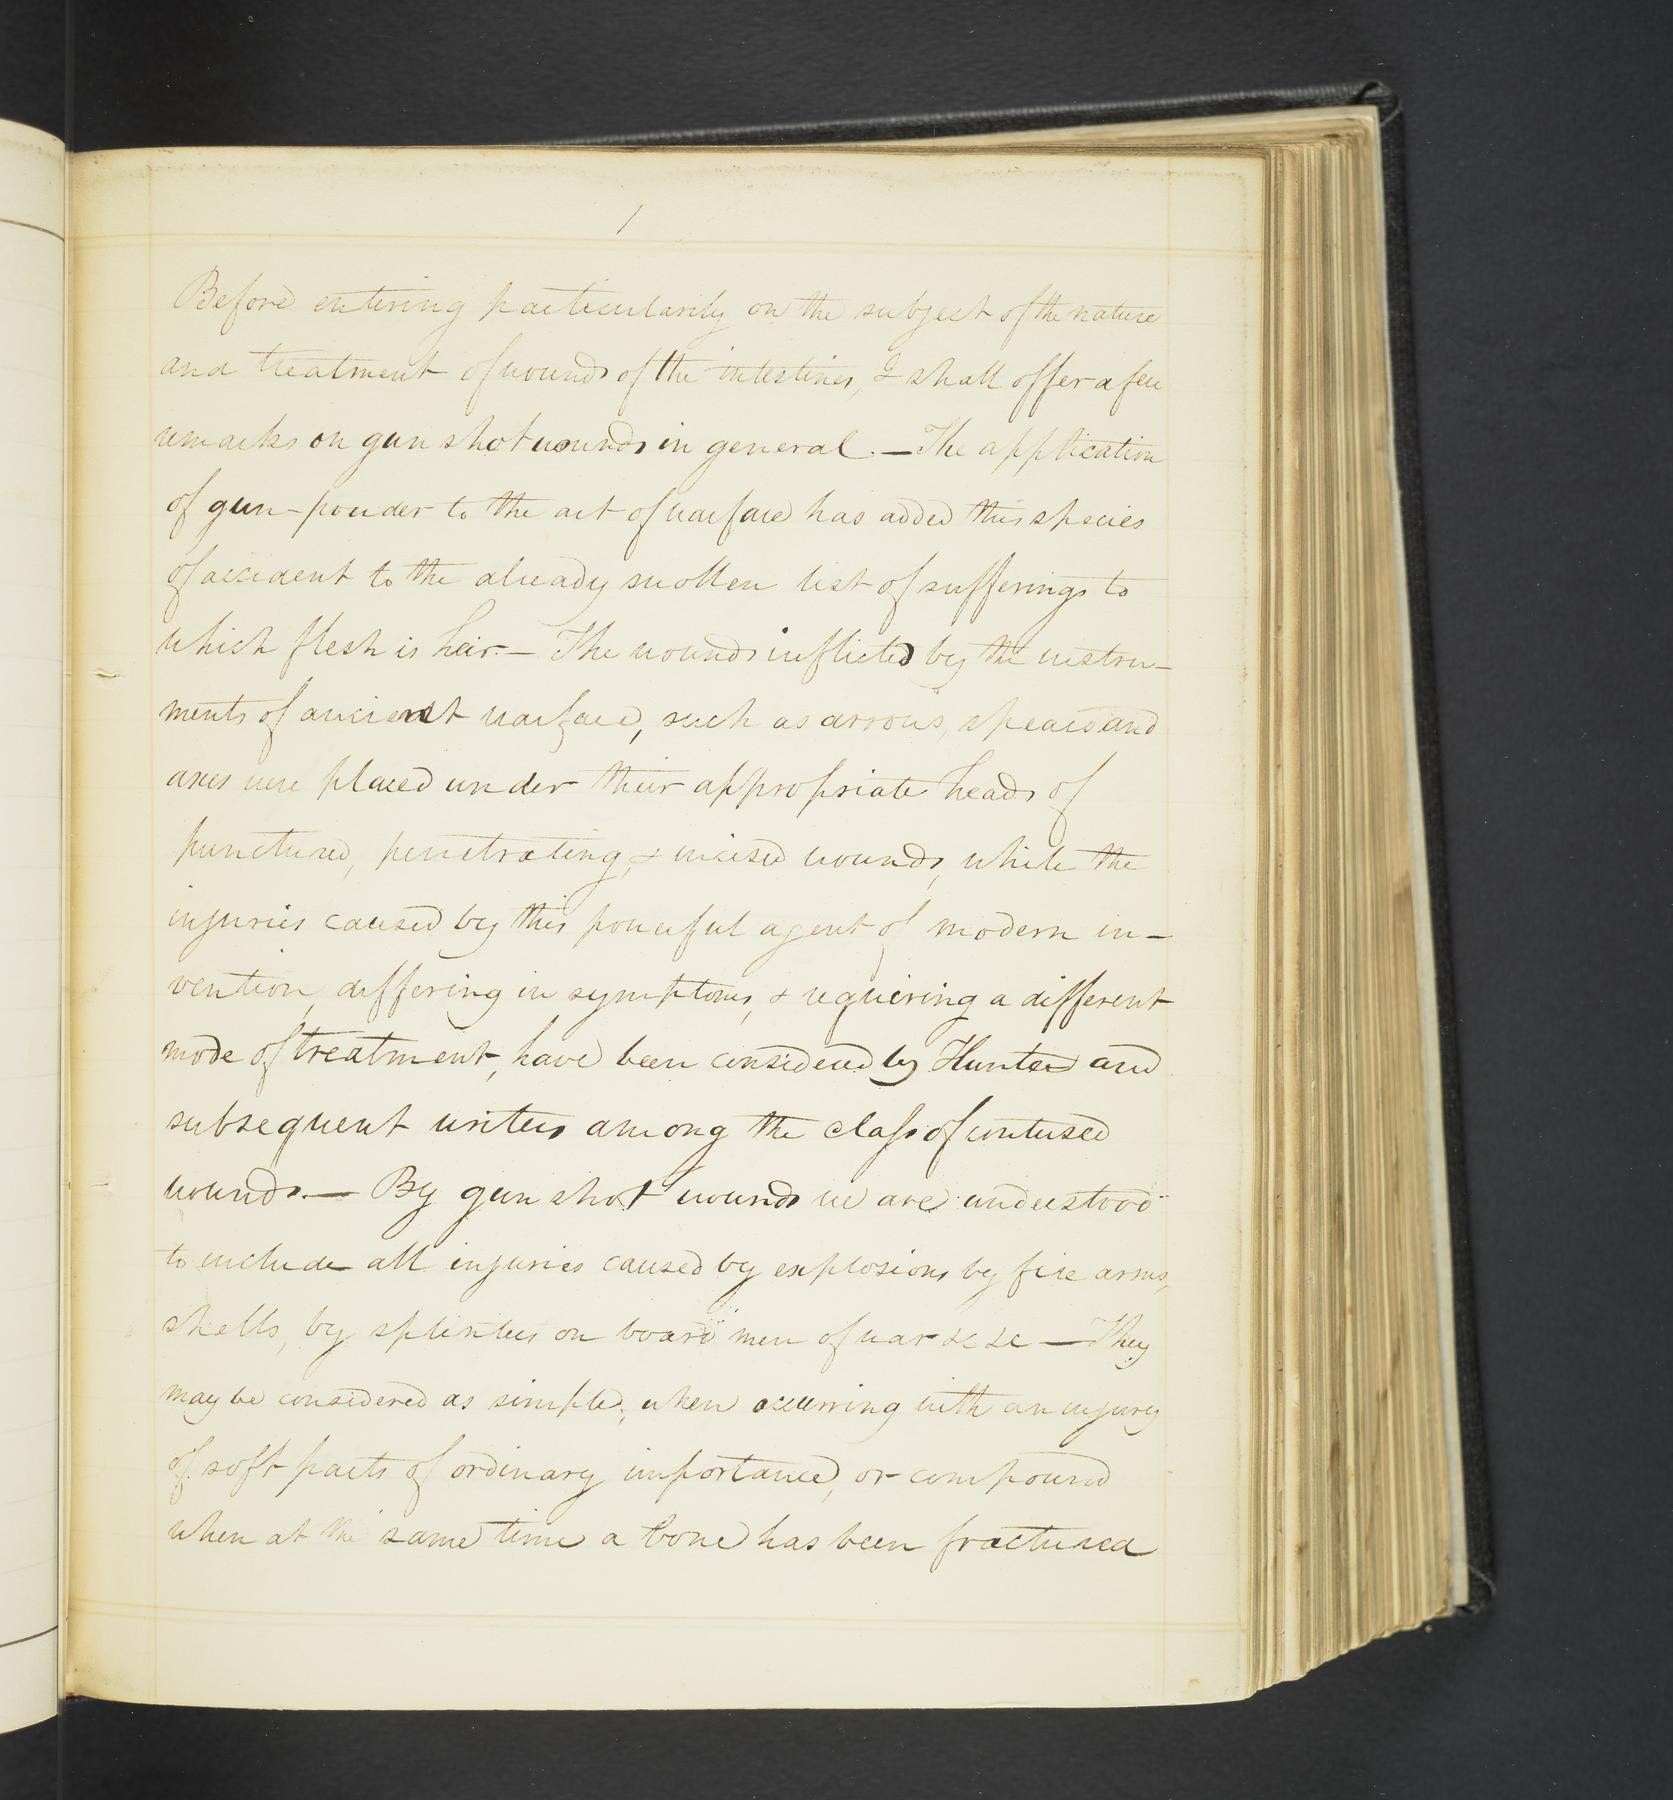 1
Before entering particularily on the subject of the nature
and treatment of wounds of the intestines, I shall offer a few
remarks on gun shot wounds in general. — The application
of gun-powder to the art of warfare has added this species
of accident to the already swollen list of sufferings to
which flesh is heir. — The wounds inflicted by the instru-
ments of ancient warfare, such as arrows, spears and
axes were placed under their appropriate heads of
punctured, penetrating, & incised wounds, while the
injuries caused by this powerful agent of modern in-
vention, differing in symptoms, & requiering a different
mode of treatment, have been considered by Hunter and
subsequent writers among the class of contused
wounds. — By gun shot wounds we are understood
to include all injuries caused by explosions by fire arms,
shells, by splinters on board men of war &c &c — They
may be considered as simple, when occurring with an injury
of soft parts of ordinary importance, or compound
when at the same time a bone has been fractured